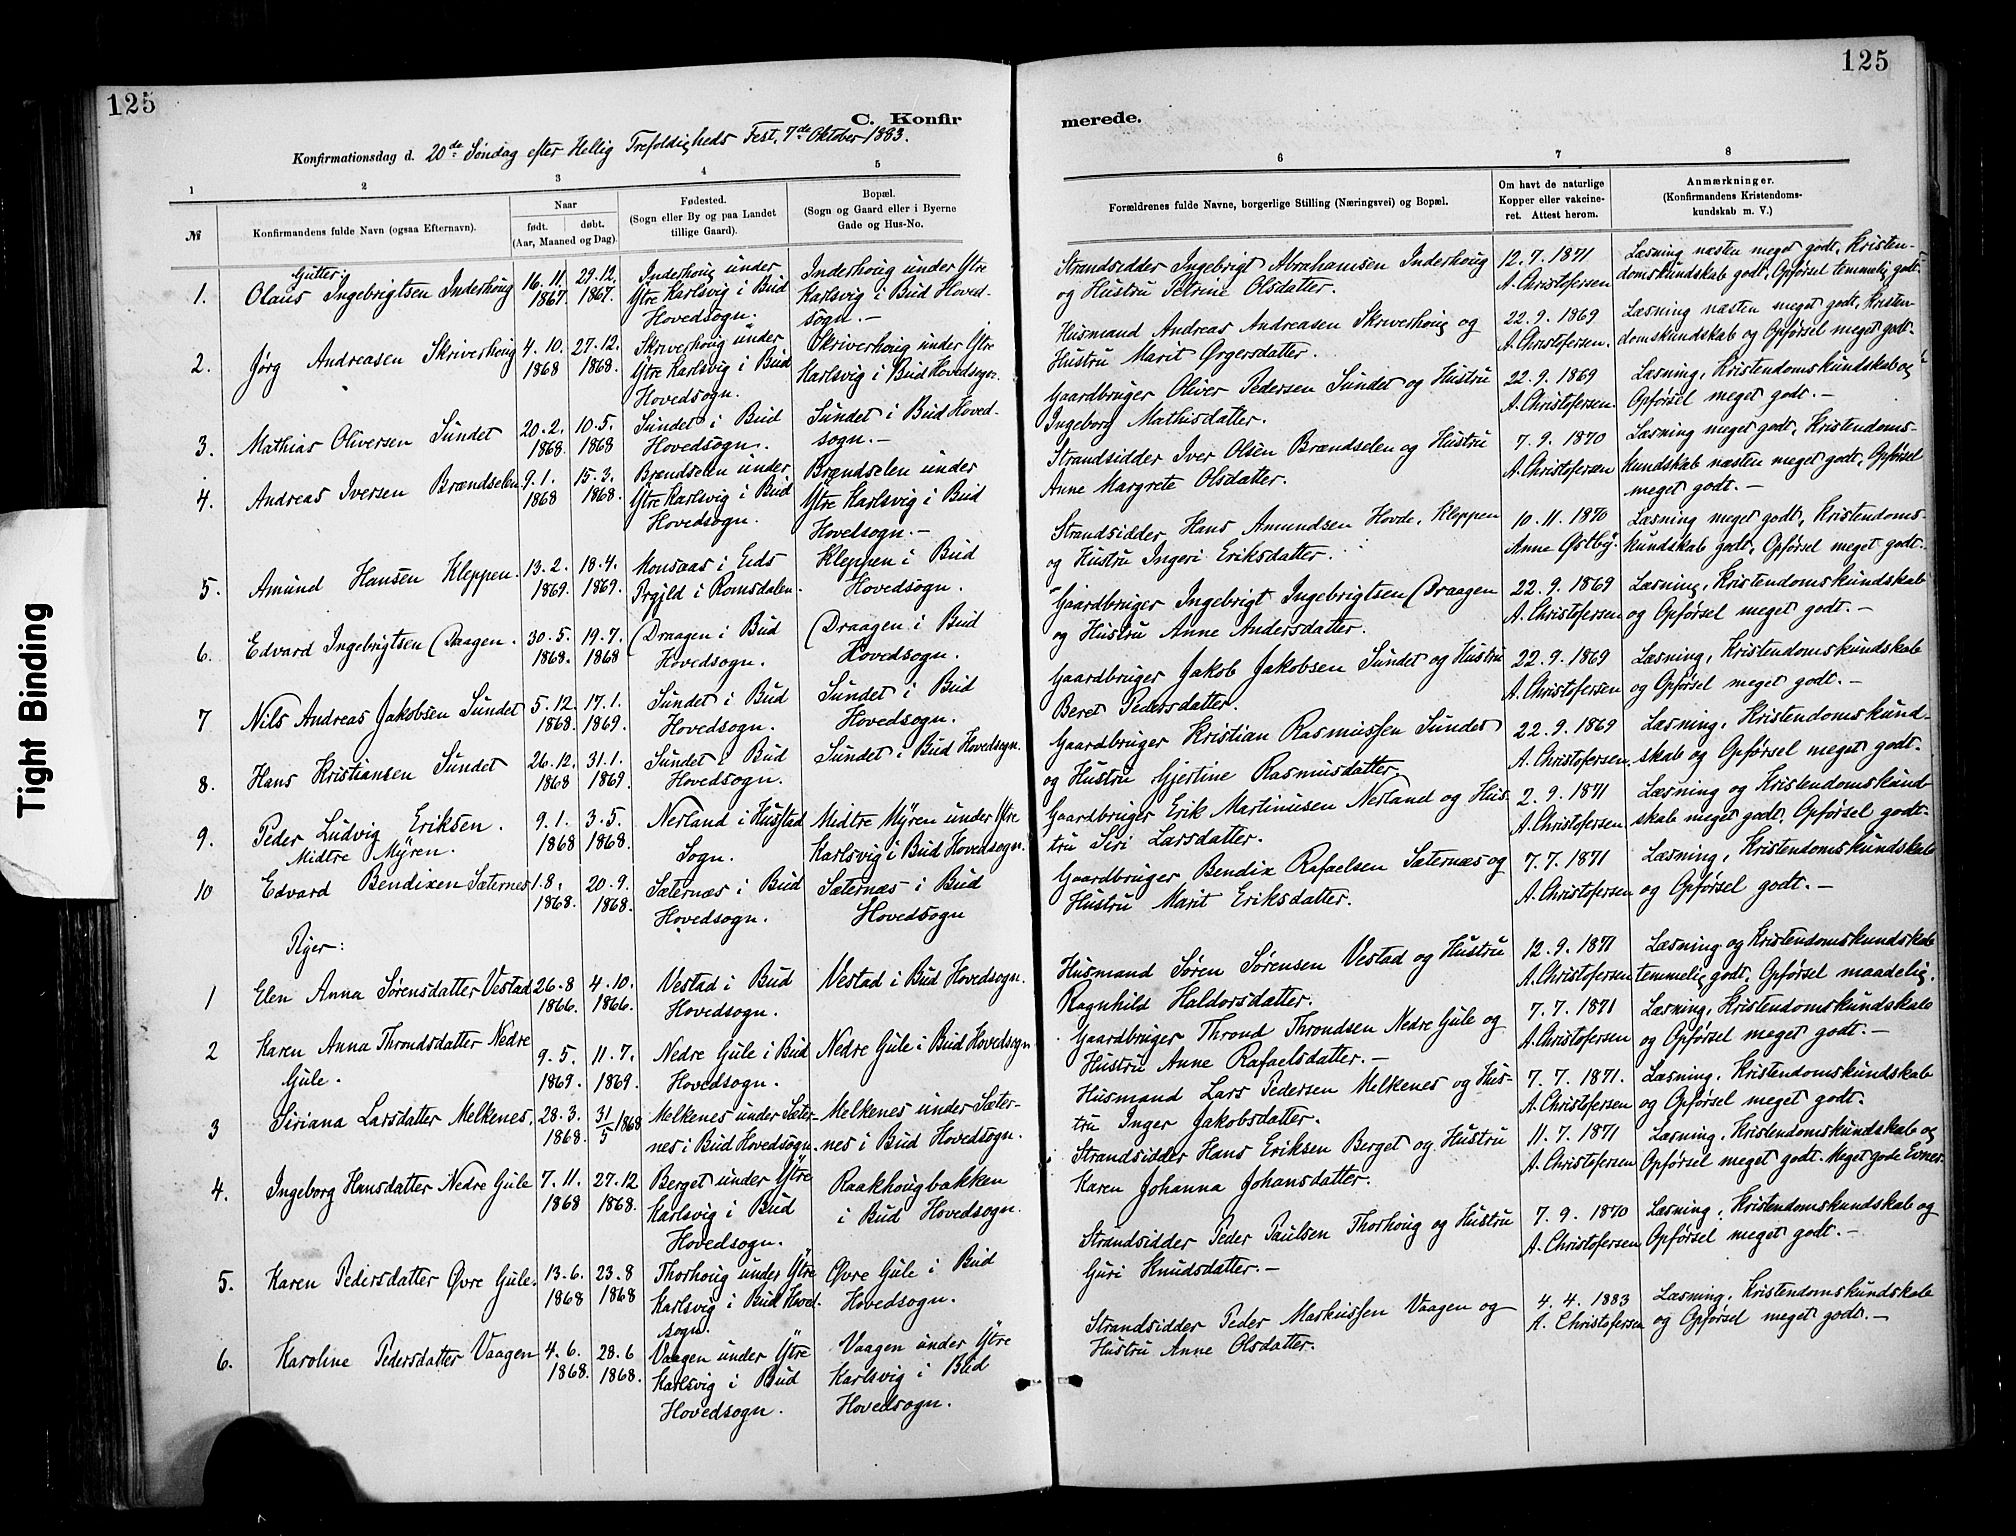 125
125
C. Konfir
merede.
Konfirmationsdag d. 20de Søndag efter Hellig Trefoldigheds Fest, 7de Oktober 1883.
1 2 3 4 5 6 7 8
№
Konfirmandens fulde Navn (ogsaa Efternavn).
Naar
født. døbt.
(Aar, Maaned og Dag).
Fødested.
(Sogn eller By og paa Landet
tillige Gaard).
Bopæl.
(Sogn og Gaard eller i Byerne
Gade og Hus-No.
Forældrenes fulde Navne, borgerlige Stilling (Næringsvei) og Bopæl.
Om havt de naturlige
Kopper eller vakcine-
ret. Attest herom.
Anmærkninger.
(Konfirmandens Kristendoms-
kundskab m. V.)
Gutter:
1. Olaus Ingebrigtsen Inderhoug
16. 11. 1867
29. 12. 1867.
Inderhoug under
Ytre Karlsvig i Bud
Hovedsogn.
Inderhoug under Ytre
Karlsvig i Bud Hoved-
sogn. —
Strandsidder Ingebrigt Abrahamsen Inderhoug
og Hustru Petrine Olsdatter.
12. 7. 1871
A. Christofersen
Læsning næsten meget godt, Kristen-
domskundskab godt, Opførsel temmelig godt.
2. Jørg Andreasen Skriverhoug
4. 10. 1868
27. 12. 1868.
Skriverhoug under
Ytre Karlsvig i Bud
Hovedsogn.
Skriverhoug under Ytre
Karlsvig i Bud Hovedsogn.
Husmand Andreas Andreasen Skriverhoug og
Hustru Marit Ørgersdatter.
22. 9. 1869
A. Christofersen.
Læsning næsten meget godt, Kristen-
domskundskab og Opførsel meget godt.
3. Mathias Oliversen Sundet
20. 2. 1868
10. 5. 1868
Sundet i Bud
Hovedsogn.
Sundet i Bud Hoved-
sogn. —
Gaardbruger Oliver Pedersen Sundet og Hustru
Ingeborg Mathisdatter.
22. 9. 1869
A. Christofersen.
Læsning, Kristendomskundskab og
Opførsel meget godt. —
4. Andreas Iversen Brændselen
9. 1. 1868
15. 3. 1868.
Brændselen under
Ytre Karlsvig i Bud
Hovedsogn.
Brændselen under
Ytre Karlsvig i Bud
Hovedsogn. —
Strandsidder Iver Olsen Brændselen og Hustru
Anne Margrete Olsdatter.
7. 9. 1870
A. Christofersen
Læsning meget godt, Kristendoms-
kundskab næsten meget godt, Opførsel
meget godt. —
5. Amund Hansen Kleppen.
13. 2. 1869.
18. 4. 1869.
Monsaas i Eids
Prgjld i Romsdalen.
Kleppen i Bud
Hovedsogn.
Strandsidder Hans Amundsen Hovde, Kleppen
og Hustru Ingeri Eriksdatter.
10. 11. 1870
Anne Østby.
Læsning meget godt, Kristendoms-
kundskab godt, Opførsel meget godt.
6. Edvard Ingebrigtsen Draagen.
30. 5. 1868.
19. 7. 1868
Draagen i Bud
Hovedsogn.
Draagen i Bud
Hovedsogn.
Gaardbruger Ingebrigt Ingebrigtsen Draagen
og Hustru Anne Andersdatter.
22. 9. 1869
A. Christofersen
Læsning, Kristendomskundskab
og Opførsel meget godt. —
7 Nils Andreas Jakobsen Sundet
5. 12. 1868.
17. 1. 1869.
Sundet i Bud
Hovedsogn.
Sundet i Bud
Hovedsogn.
Gaardbruger Jakob Jakobsen Sundet og Hustru
Beret Pedersdatter.
22. 9. 1869
A. Christofersen
Læsning, Kristendomskundskab
og Opførsel meget godt. —
8. Hans Kristiansen Sundet
26. 12. 1868
31. 1. 1869
Sundet i Bud
Hovedsogn.
Sundet i Bud Hovedsogn.
Gaardbruger Kristian Rasmussen Sundet
og Hustru Gjertine Rasmusdatter.
22. 9. 1869
A. Christofersen.
Læsning, Kristendomskund-
skab og Opførsel meget godt.
9. Peder Ludvig Eriksen.
Midtre Myren.
9. 1. 1868
3. 5. 1868.
Nerland i Hustad
Sogn.
Midtre Myren under Ytre
Karlsvig i Bud Hovedsogn.
Gaardbruger Erik Martinusen Nerland og Hus-
tru Siri Larsdatter.
2. 9. 1871
A. Christofersen
Læsning og Kristendomskund
skab meget godt, Opførsel godt.
10 Edvard Bendixen Sæternes
1. 8. 1868.
20. 9. 1868.
Sæternæs i Bud
Hovedsogn.
Sæternæs i Bud
Hovedsogn
Gaardbruger Bendix Rafaelsen Sæternæs og
Hustru Marit Eriksdatter.
7. 7. 1871
A. Christofersen
Læsning, Kristendomskundskab
og Opførsel godt. —
Piger:
1 Elen Anna Sørensdatter Vestad
26. 8 1866.
4. 10. 1866.
Vestad i Bud
Hovedsogn.
Vestad i Bud Hovedsogn.
Husmand Søren Sørensen Vestad og Hustru
Ragnhild Haldorsdatter.
12. 9. 1871
A. Christofersen
Læsning og Kristendomskundskab
temmelig godt, Opførsel maadelig.
2 Karen Anna Throndsdatter Nedre
Gule.
9. 5. 1869.
11. 7. 1869.
Nedre Gule i Bud
Hovedsogn.
Nedre Gule i Bud Hovedsogn
Gaardbruger Thrond Throndsen Nedre Gule og
Hustru Anne Rafaelsdatter. —
7. 7. 1871
A. Christofersen
Læsning, Kristendomskundskab
og Opførsel meget godt. —
3 Siriana Larsdatter Melkenes.
28. 3. 1868.
31/5 1868
Melkenes under Sæter-
nes i Bud Hovedsogn.
Melkenes under Sæter-
nes i Bud Hovedsogn.
Husmand Lars Pedersen Melkenes og Hus-
tru Inger Jakobsdatter.
7. 7. 1871.
A. Christofersen
Læsning, Kristendomskundskab
og Opførsel meget godt.
4. Ingeborg Hansdatter Nedre Gule
7. 11. 1868
27. 12 1868.
Berget under Ytre
Karlsvig i Bud
Hovedsogn.
Raakhougbakken
i Bud Hovedsogn.
Strandsidder Hans Eriksen Berget og Hustru
Karen Johanna Johansdatter.
11. 7. 1871
A. Christofersen
Læsning, Kristendomskundskab og
Opførsel meget godt. Meget gode Evner.
5. Karen Pedersdatter Øvre Gule.
13. 6. 1868
23. 8 1868
Thorhoug under Ytre
Karlsvig i Bud Hoved-
sogn.
Øvre Gule i Bud
Hovedsogn.
Strandsidder Peder Paulsen Thorhoug og Hustru
Guri Knudsdatter. —
7. 9. 1870
A. Christofersen
Læsning, Kristendomskundskab og
Opførsel meget godt. —
6. Karoline Pedersdatter Vaagen
4. 6. 1868.
28. 6 1868.
Vaagen under Ytre
Karlsvig i Bud
Hovedsogn.
Vaagen under Ytre
Karlsvig i Bud
Hovedsogn.
Strandsidder Peder Markussen Vaagen og
Hustru Anne Olsdatter.
4. 4. 1883
A. Christofersen
Læsning, Kristendomskundskab
og Opførsel meget godt. —
Tight Binding